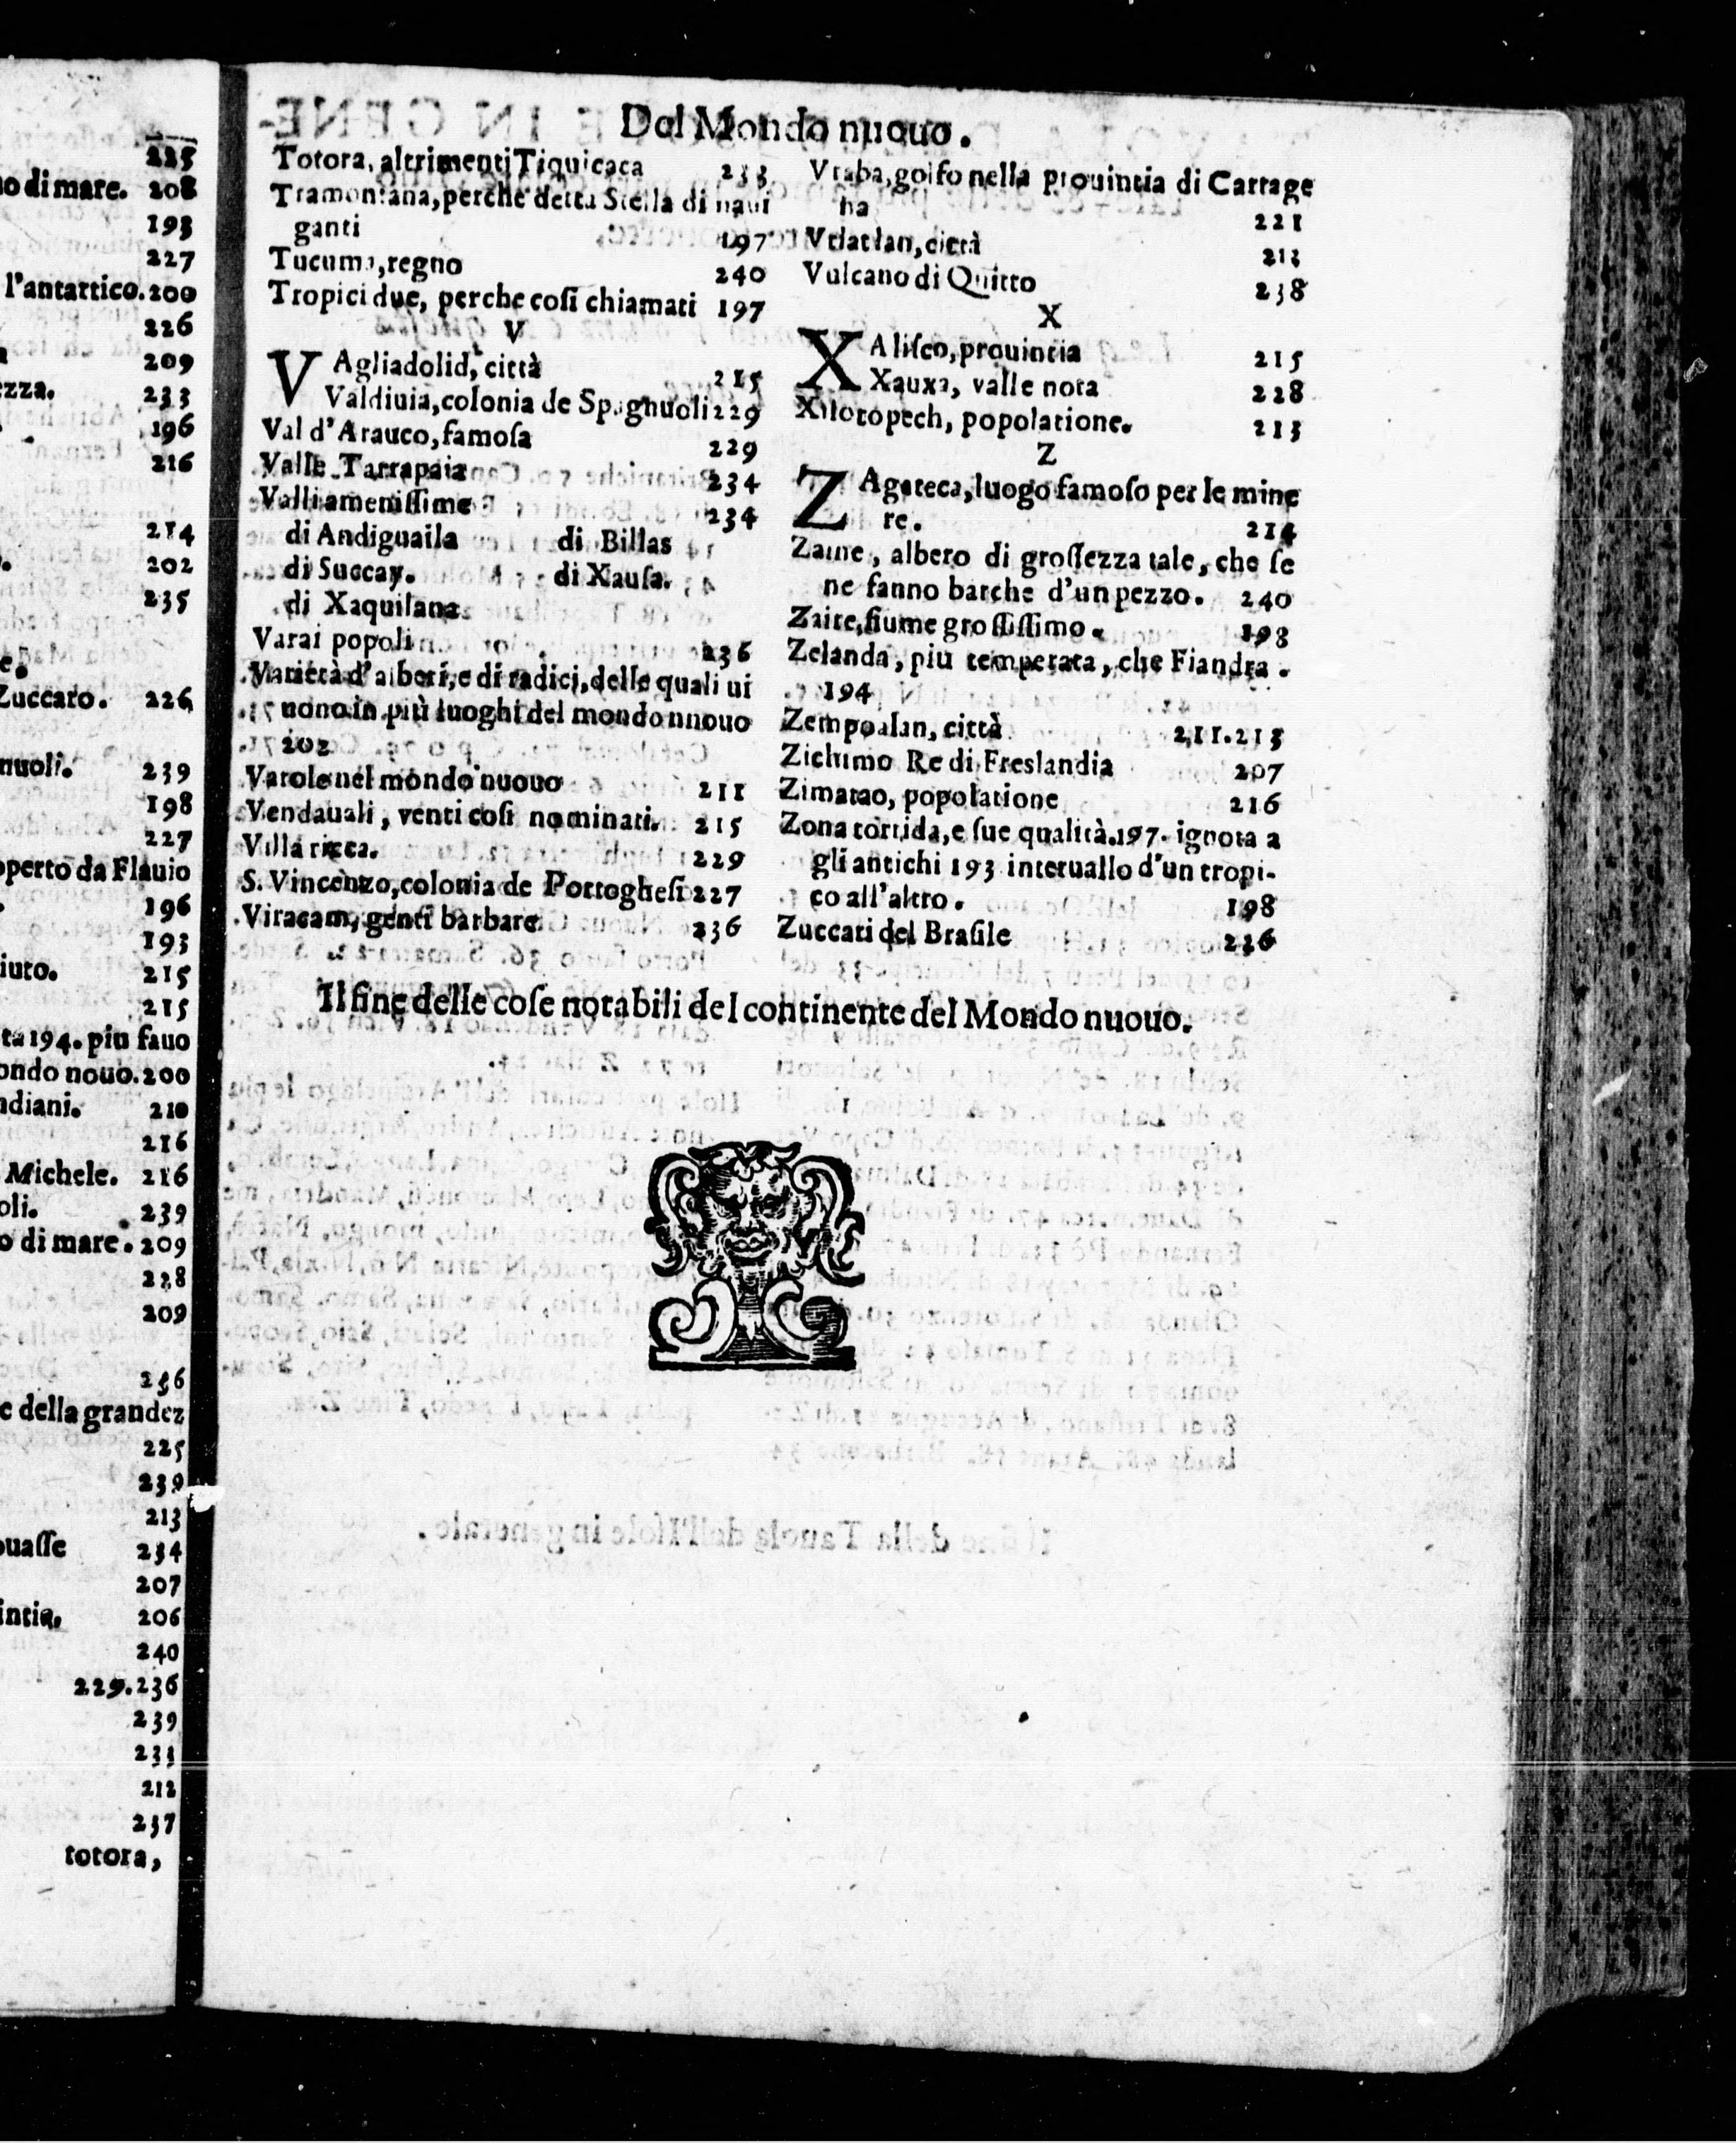 225
no di mare. 208
193
227
l'antartico. 200
226
209
ezza. 233
196
216
214
202
235
e.
Zuccaro. 226
nuoli. 239
198
227
operto da Flauio
196
193
iuto. 215
215
ta 194. piu fauo
ondo nouo. 200
ndiani. 210
216
Michele. 216
oli. 239
o di mare. 209
228
209
236
e della grandez
225
239
213
ouaſſe 234
207
intia. 206
240
229.236
239
233
212
237
totora,
Del Mondo nuouo.
Totora, altrimenti Tiquicaca 233
Tramontana, perche detta Stella di naui
ganti 197
Tucuma, regno 240
Tropici due, perche coſi chiamati 197
V
VAgliadolid, città 215
Valdiuia, colonia de Spagnuoli 229
Val d'Arauco, famoſa 229
Valle Tarrapaia 234
Valli ameniſſime 234
di Andiguaila di Billas
di Succay. di Xauſa.
di Xaquiſana
Varai popoli 236
Varietà d'alberi, e di radici, delle quali ui
uono in più luoghi del mondo nnouo
202
Varole nel mondo nuouo 211
Vendauali, venti coſi nominati. 215
Villa ricca. 229
S. Vincenzo, colonia de Portogheſi 227
Viracam, genti barbare 236
Vraba, golfo nella prouintia di Cartage
na 221
Vtlatlan, città 213
Vulcano di Quitto 238
X
XAliſco, prouintia 215
Xauxa, valle nota 228
Xilotopech, popolatione. 213
Z
ZAgateca, luogo famoſo per le mine
re. 214
Zaine, albero di groſſezza tale, che ſe
ne fanno barche d'un pezzo. 240
Zaire, fiume groſſiſſimo. 198
Zelanda, piu temperata, che Fiandra.
194
Zempoalan, città 211.213
Zichimo Re di Freslandia 207
Zimatao, popolatione 216
Zona torrida, e ſue qualità. 197. ignota a
gli antichi 193 interuallo d'un tropi-
co all'altro. 198
Zuccari del Braſile 236
Il fine delle coſe notabili del continente del Mondo nuouo.